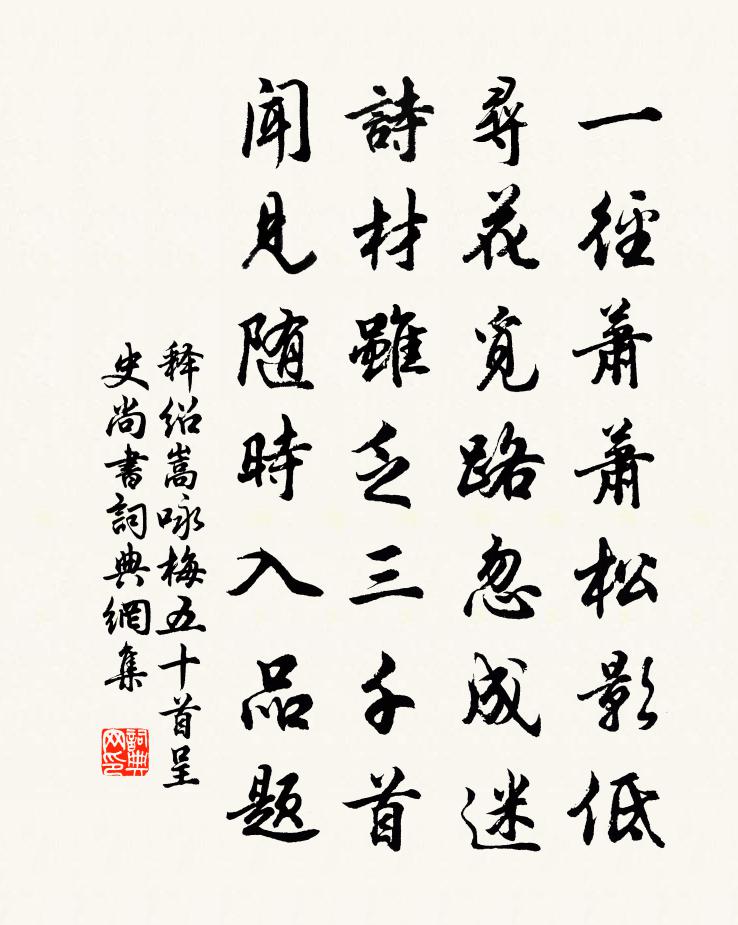 一徑蕭蕭松影低
尋花覓路忽成迷
詩材雖乏三千首
聞見随時入品题
释绍嵩咏梅五十首呈
史尚書詞典網集
詞典
网印